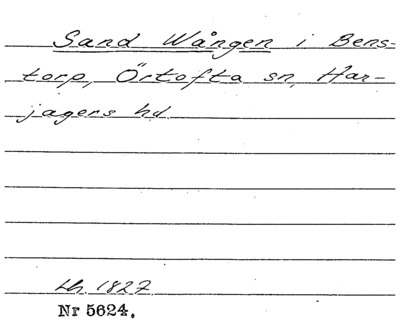 Sand Wången i Bens-
torp, Örtofta sn, Har-
jagers hd.
Lh. 1827
Nr 5624.